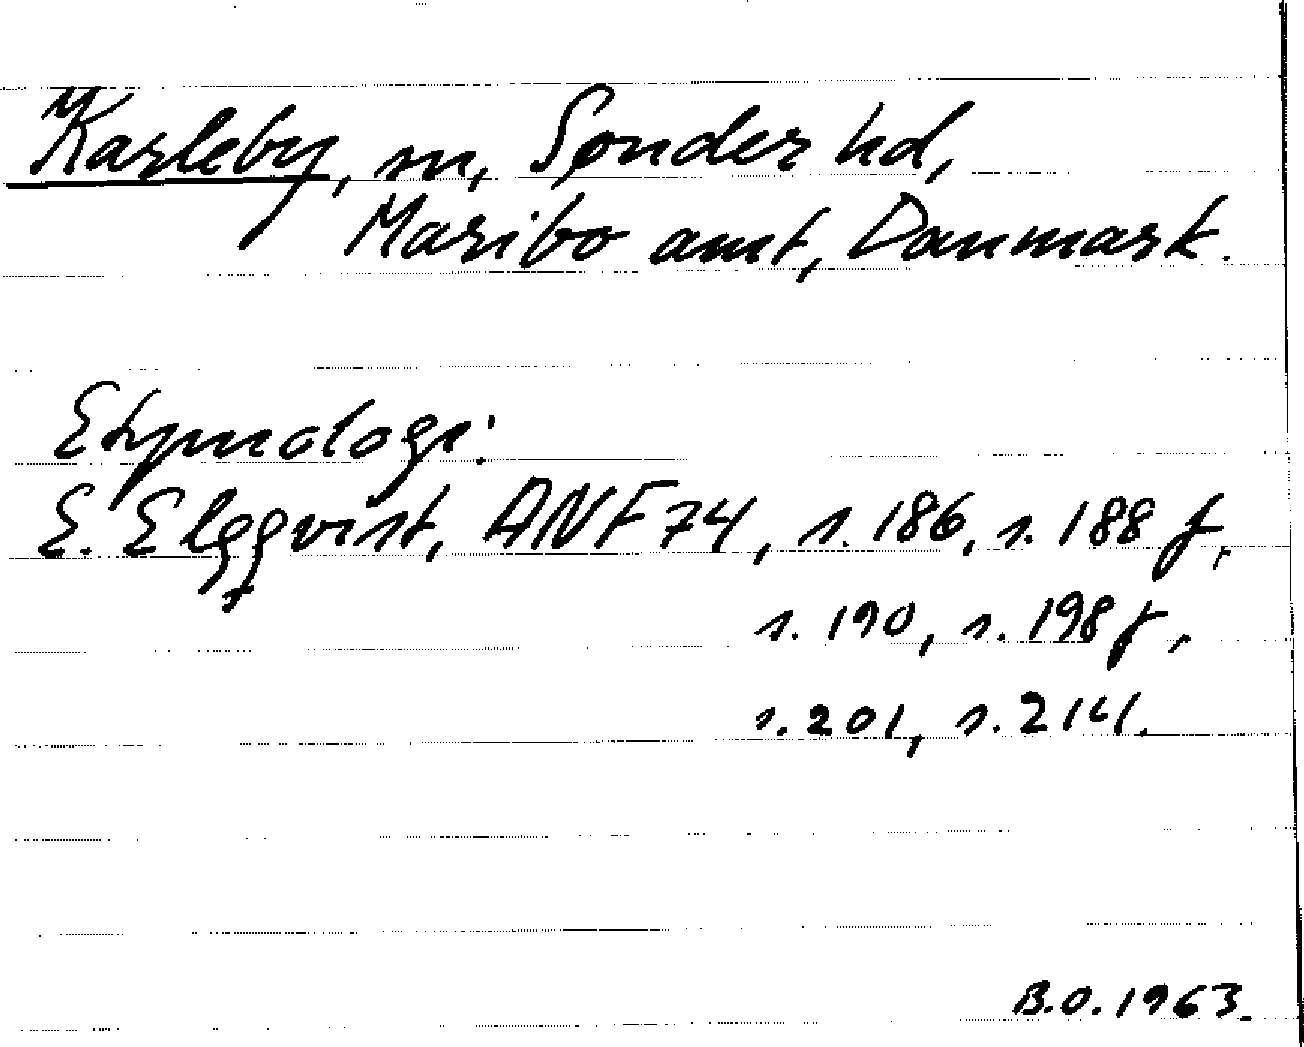 Karleby, sn, Sønder hd,
Maribo amt, Danmark.
Etymologi:
E. Elgqvist, ANF 74, s. 186, s. 188 f,
s. 190, s. 198 f,
s. 201, s. 214.
B.O. 1963.